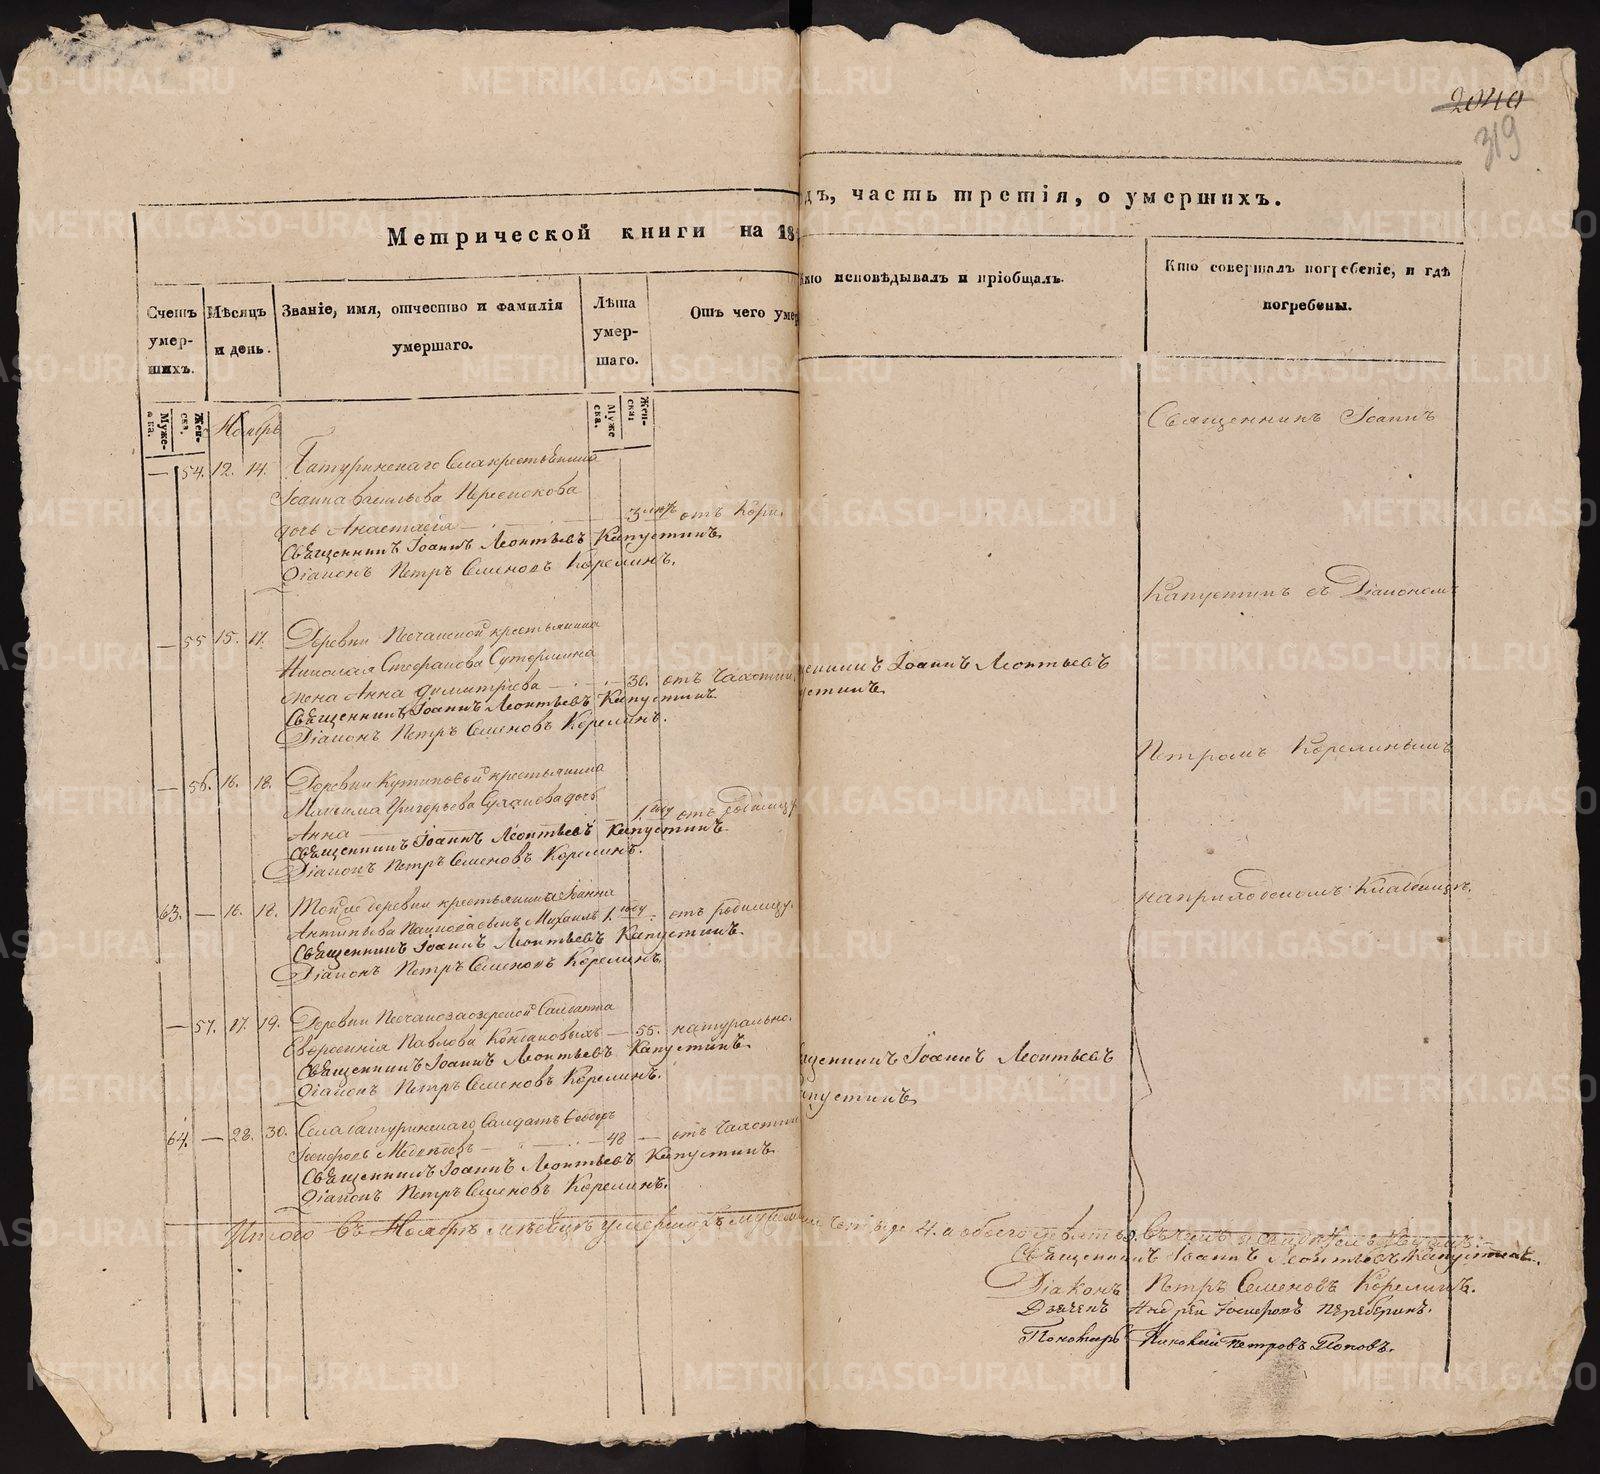 2040
319
Метрической книги на 18
дъ, часть третія, о умершихъ.
Счетъ умер-шихъ.
Мѣсяцъ и день.
Званіе, имя, отчество и фамилія умершаго.
Лѣта умер-шаго.
Отъ чего умер
Кто исповѣдывалъ и пріобщалъ.
Кто совершалъ погребеніе, и гдѣ погребены.
Муже-ска.
Жен-ска.
Муже ска.
Жен-ска.
Ноябрь
Священникъ Іоаннъ
— 54. 12. 14. Батуринскаго Села крестьянина
Іоанна Васильева
дочь Анастасія — отъ кори.
Священникъ Іоаннъ Леонтьевъ Капустинъ.
Діаконъ Петръ Семеновъ Корелинъ.
Капустинъ съ Діакономъ
— 55 15. 17. Деревни Песчанской крестьянина
Николая Стефанова Сутормина
жена Анна Димитріева — 30. отъ Чахотки
Священникъ Іоаннъ Леонтьевъ Капустинъ
Діаконъ Петръ Семеновъ Корелинъ.
щенникъ Іоаннъ Леонтьевъ
устинъ
Петромъ Корелинымъ
— 56. 16. 18. Деревни крестьянина
Максима Григорьева дочь
Анна — 1. году отъ родимцу
Священникъ Іоаннъ Леонтьевъ Капустинъ
Діаконъ Петръ Семеновъ Корелинъ.
на приходскомъ Кладбищѣ.
63. — 16. 18. Той же деревни крестьянина Іоанна
Антипьева сынъ Михаилъ 1. году — отъ родимцу.
Священникъ Іоаннъ Леонтьевъ Капустинъ.
Діаконъ Петръ Семеновъ Корелинъ.
— 57. 17. 19. Деревни Песчаноозерской Салдатка
Павлова — 55. натурально.
Священникъ Іоаннъ Леонтьевъ Капустинъ.
Діаконъ Петръ Семеновъ Корелинъ.
щенникъ Іоаннъ Леонтьевъ
апустинъ
64. — 28. 30. Села Батуринскаго Салдатъ Ѳеодоръ
Медвѣдевъ — 48 — отъ Чахотки
Священникъ Іоаннъ Леонтьевъ Капустинъ
Діаконъ Петръ Семеновъ Корелинъ.
Итого въ Ноябрѣ мѣсяцѣ умершихъ 4. а обоего
Священникъ Іоаннъ Леонтьевъ Капустинъ.
Діаконъ Петръ Семеновъ Корелинъ.
Дьячекъ Андрей
Пономарь Петровъ Поповъ.
METRIKI.GASO-URAL.RU